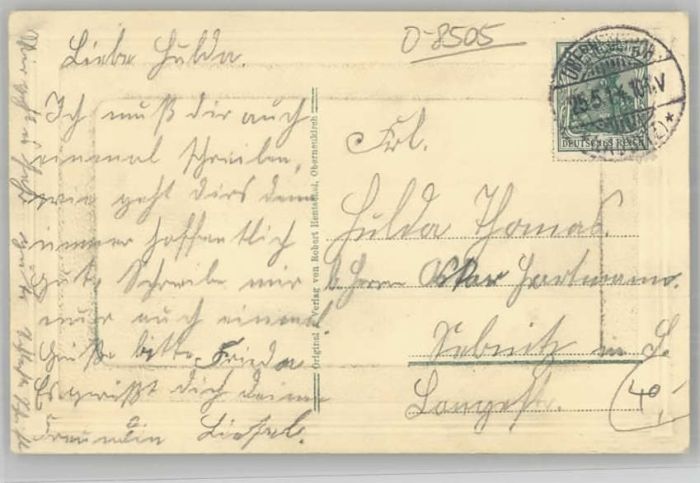 O-8505
Liebe Hulda.
Ich muß dir auch
einmal schreiben,
wie geht dirs denn
immer hoffentlich
gut. Schreibe mir
nur auch einmal
Grüße bitte Frieda
Es grüßt dich deine
Freundin Liesel.
Original u. Verlag von Robert Hentschel, Oberneukirch
DEUTSCHES REICH
25.5. 10-11.V
Frl.
Hulda Thomas.
b. Herrn Oskar Hartmann.
Sebnitz in S.
Langestr.
40,-